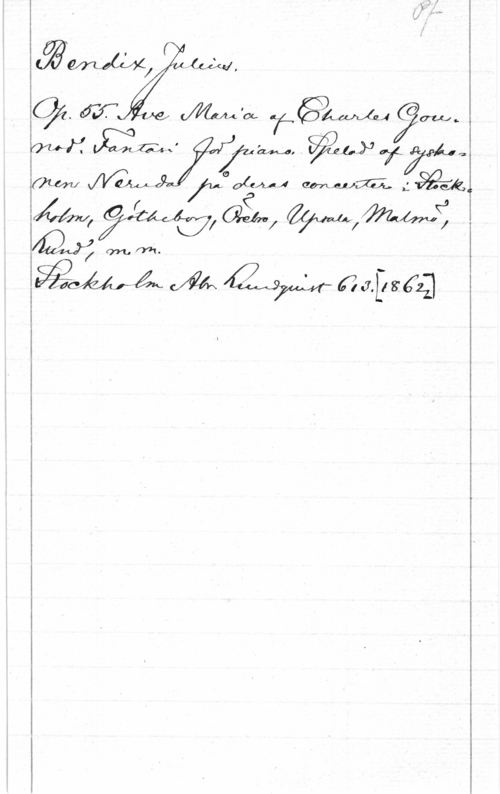 Pf
Bendix, Julius.
Op. 55. Ave Maria af Charles Gou-
nod. Fantasi för piano. Spelad af sysko-
nen Neruda på deras concerter i Stock-
holm, Götheborg, Örebro, Upsala, Malmö,
Lund, m. m.
Stockholm Abr. Lundquist 613. [1862]